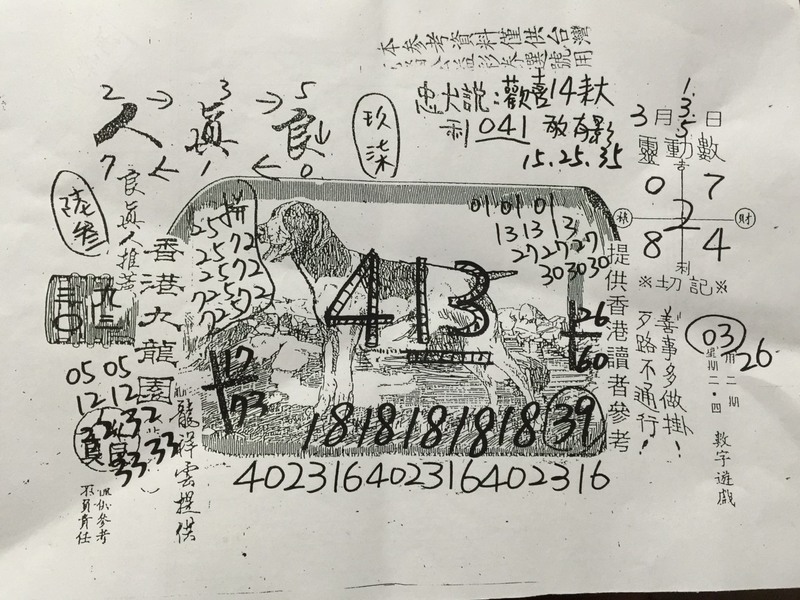 本參考資料僅供台灣
選號用
2 → 3 → 5
人真良
7 ← 1 ← 0
玖柒
說:歡喜14來
剎041 敢有影
15.25.35
1.3.5
3月 日
靈動數
吉
0 7
2
8 4
財
利
※切記※
良真人推薦
香港九龍園
龍祥雲提供
拼
25 72
25 72
25 72
72 25 72
01 01 01
13 13 13
27 27 27
30 30 30
413
26
60
17
73
三〇
九三
05 05
12 12
32 32
33 33
181818181818
39
402316402316402316
提供香港讀者參考
善事多做掛!
歹路不通行!
03
26
星期二.四
數字遊戲
僅供參考
不負責任